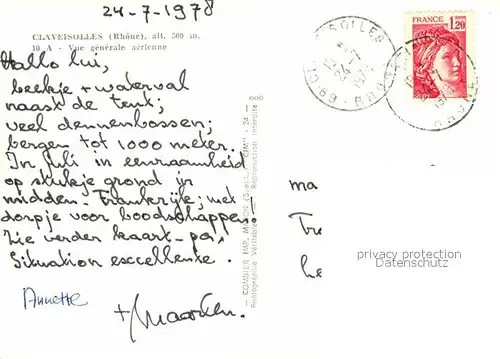 24-7-1978
CLAVEISOLLES (Rhône), alt. 500 m.
10 A - Vue générale aérienne
Hallo lui,
beekje + waterval
naast de tent;
veel dennenbossen;
bergen tot 1000 meter.
In juli in eenzaamheid
op stukje grond in
midden-Frankrijk; met
dorpje voor boodschappen!
Zie verder kaart-pos,
Situation esccellente.
Annette
+ Maarten.
COMBIER IMP. MACON
Photographie Véritable
Reproduction interdite
FRANCE
1,20
24-7
RHONE
ma
Tre
he
privacy protection
Datenschutz